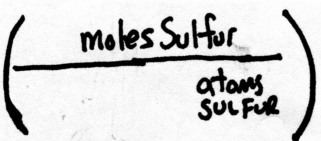 moles Sulfur
atoms
SULFUR